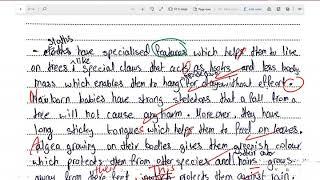 sloths
- sloths have specialised features which helps them to live
on trees, like special claws that acts as hooks and less body
mass which enables them to hang for days without effort.
Newborn babies have strong skeletons that a fall from a
tree will not cause any harm. Moreover, they have
long sticky tongues which helps them to feed on leaves.
Algea growing on their bodies gives them greenish colour
which protects them from other species and hairs grows
away from their feet. This protects them against rain.